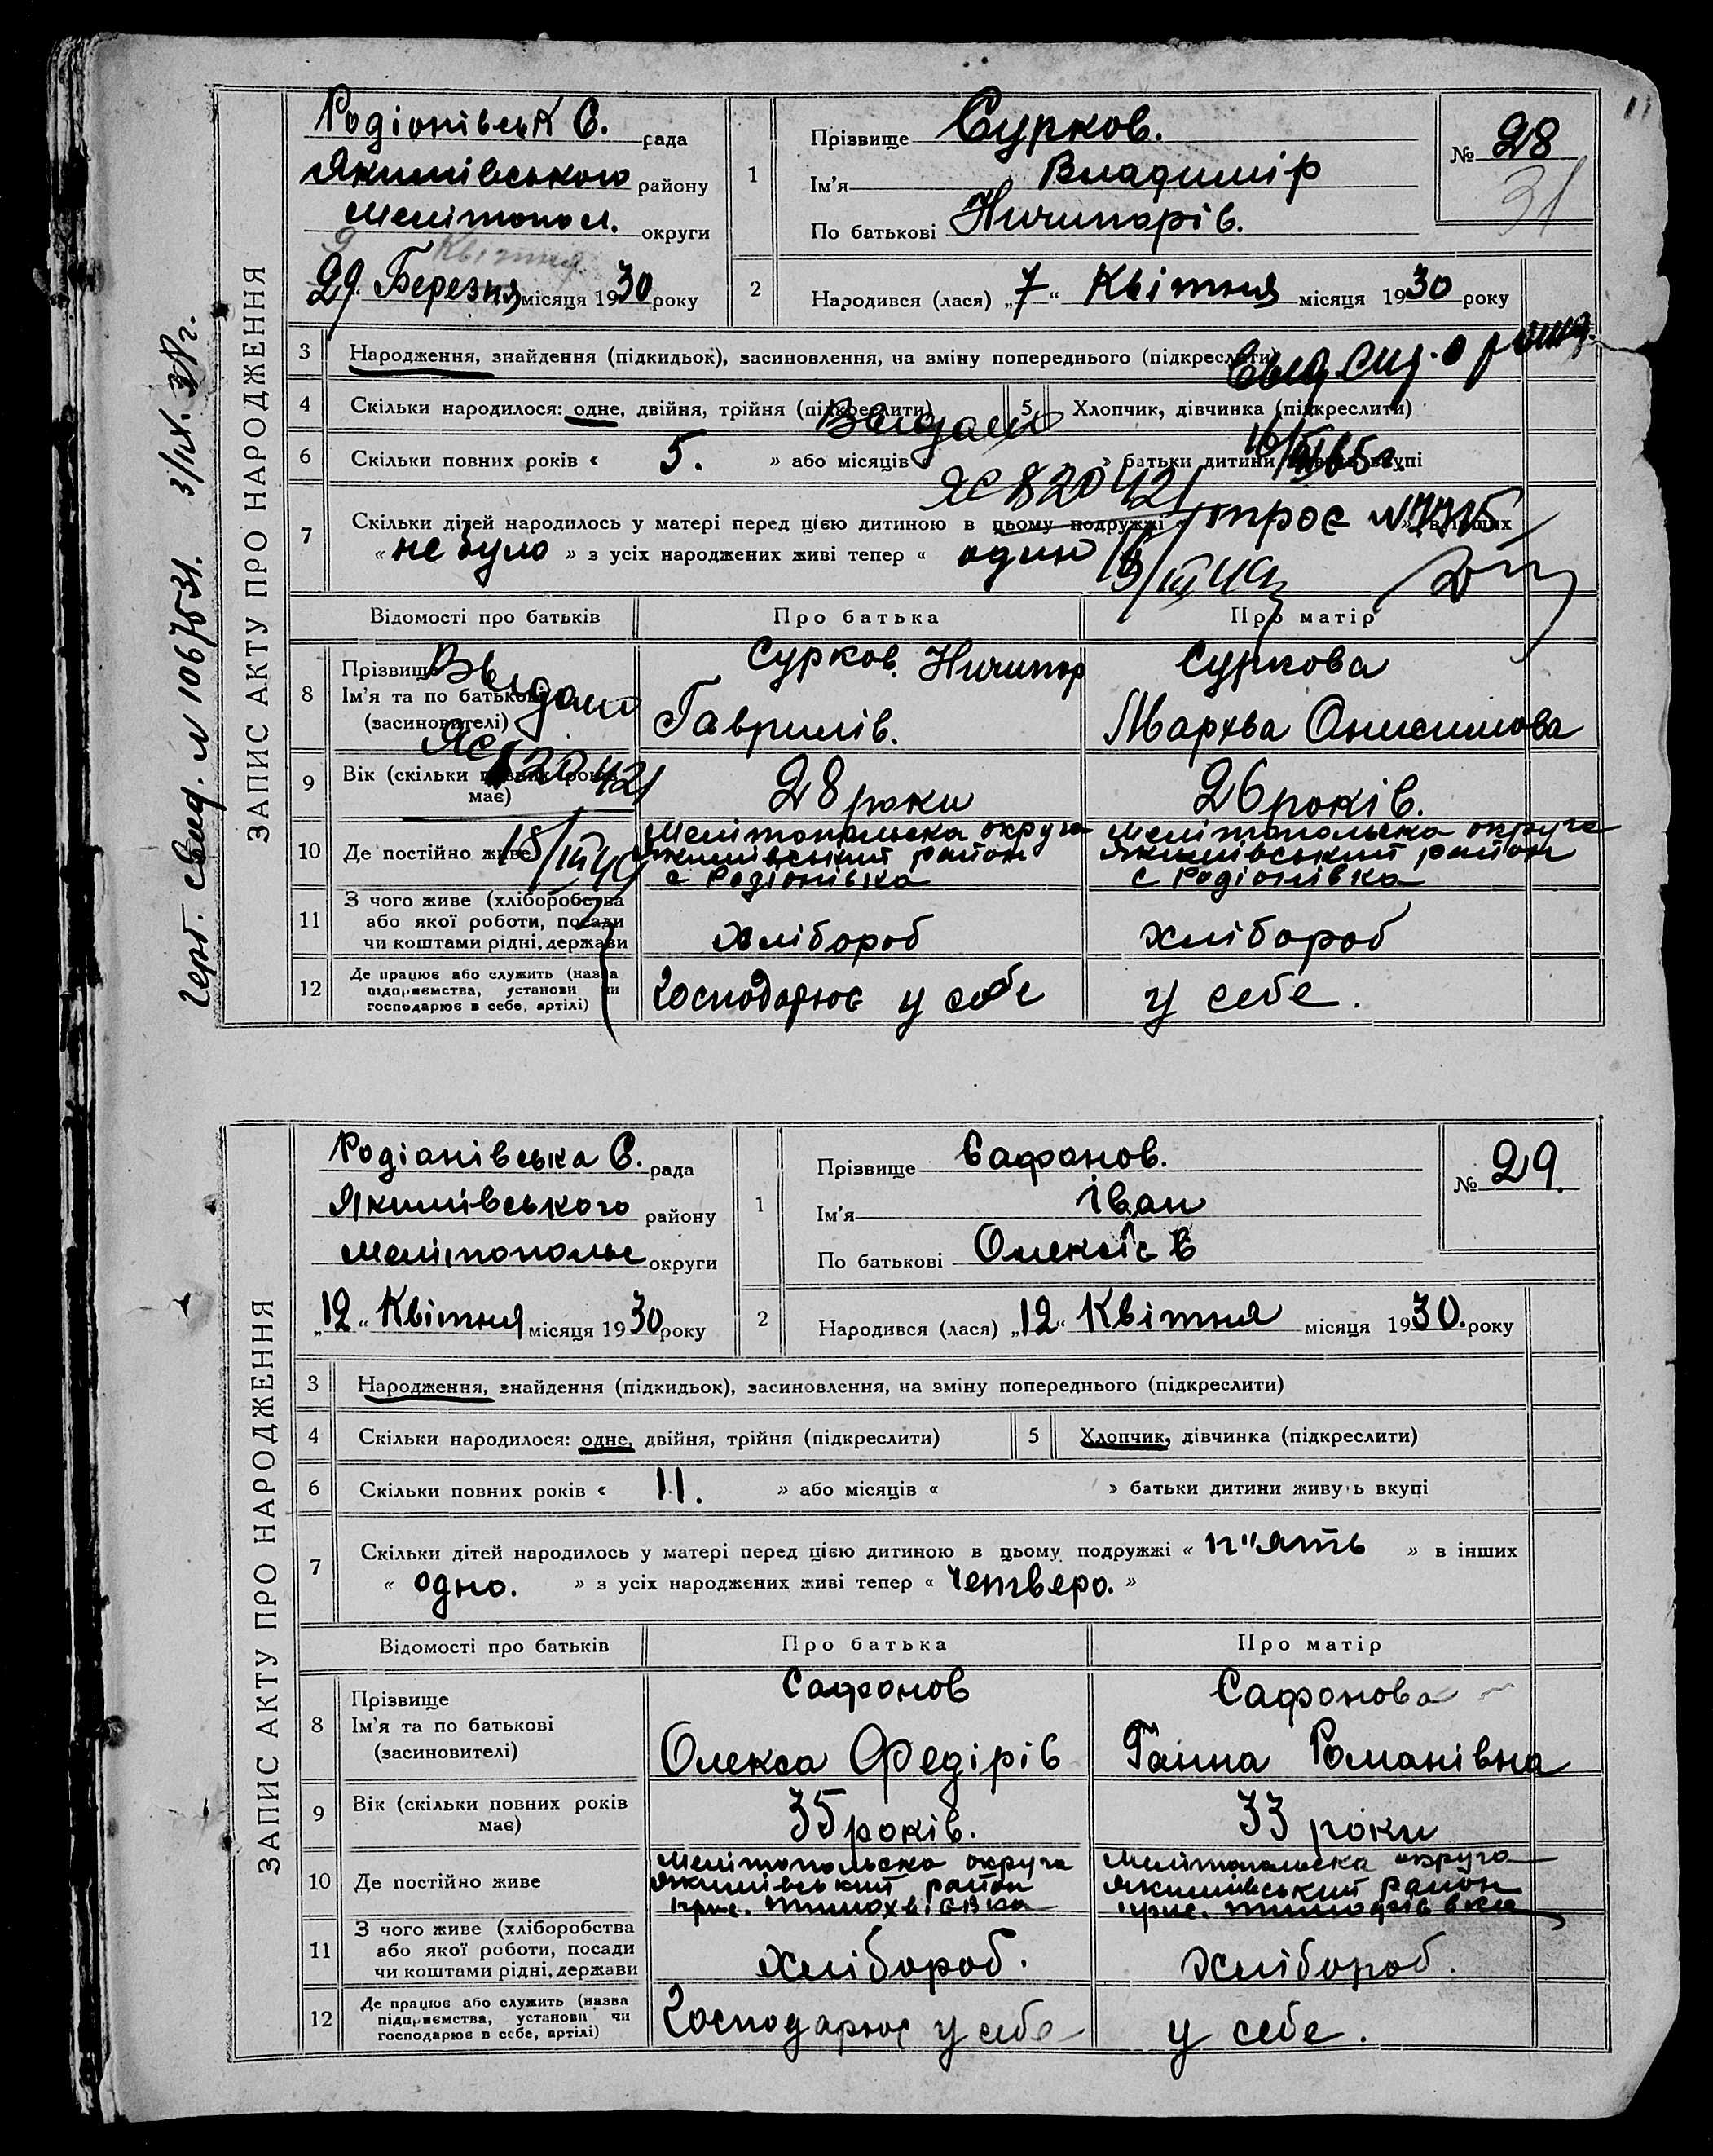 ЗАПИС АКТУ ПРО НАРОДЖЕННЯ
Родіонівськ С. рада
Якимівського району
Мелітопол. округи
Квітня
29 Березня місяця 1930 року
1
Прізвище Сурков.
Ім'я Владимір
По батькові Ничипорів.
№ 28
31
2
Народився (лася) „7“ Квітня місяця 1930 року
3 Народження, знайдення (підкидьок), засиновлення, на зміну попереднього (підкреслити)
4 Скільки народилося: одне, двійня, трійня (підкреслити) 5 Хлопчик, дівчинка (підкреслити)
Выдано
6 Скільки повних років « 5. » або місяців « » батьки дитини вкупі
ЯС 820421
7 Скільки дітей народилось у матері перед цією дитиною в цьому подружжі « » в інших
« не було » з усіх народжених живі тепер « один
Відомості про батьків Про батька Про матір
8 Прізвище
Ім'я та по батькові
(засиновителі)
Сурков. Ничипор
Гаврилів.
Суркова
Мархва Онисимова
Выдано
ЯС 820421
9 Вік (скільки повних років
має)
28 роки
26 років.
10 Де постійно живе
Мелітопольська округа
Якимівський район
с Родіонівка
Мелітопольска округа
Якимівський район
с Родіонівка
11 З чого живе (хліборобства
або якої роботи, посади
чи коштами рідні, держави
хлібороб
хлібороб
12 Де працює або служить (назва
підприємства, установи чи
господарює в себе, артілі)
Господарює у себе
у себе.
свид. N 1067531. 3/IV.
ЗАПИС АКТУ ПРО НАРОДЖЕННЯ
Родіанівська С. рада
Якимівського району
Мелітопольс округи
„12“ Квітня місяця 1930 року
1
Прізвище Сафонов.
Ім'я Іван
По батькові Олексієв
№ 29.
2
Народився (лася) „12“ Квітня місяця 1930. року
3 Народження, знайдення (підкидьок), засиновлення, на зміну попереднього (підкреслити)
4 Скільки народилося: одне, двійня, трійня (підкреслити) 5 Хлопчик, дівчинка (підкреслити)
6 Скільки повних років « 11. » або місяців « » батьки дитини живуть вкупі
7 Скільки дітей народилось у матері перед цією дитиною в цьому подружжі « п"ять » в інших
« одно. » з усіх народжених живі тепер « четверо. »
Відомості про батьків Про батька Про матір
8 Прізвище
Ім'я та по батькові
(засиновителі)
Сафонов
Олекса Федірів
Сафонова
Ганна Романівна
9 Вік (скільки повних років
має)
35 років.
33 роки
10 Де постійно живе
Мелітопольська округа
Якимівський район
Мелітопольска округа
Якимівський район
11 З чого живе (хліборобства
або якої роботи, посади
чи коштами рідні, держави
хлібороб.
хлібороб.
12 Де працює або служить (назва
підприємства, установи чи
господарює в себе, артілі)
Господарює у себе
у себе.